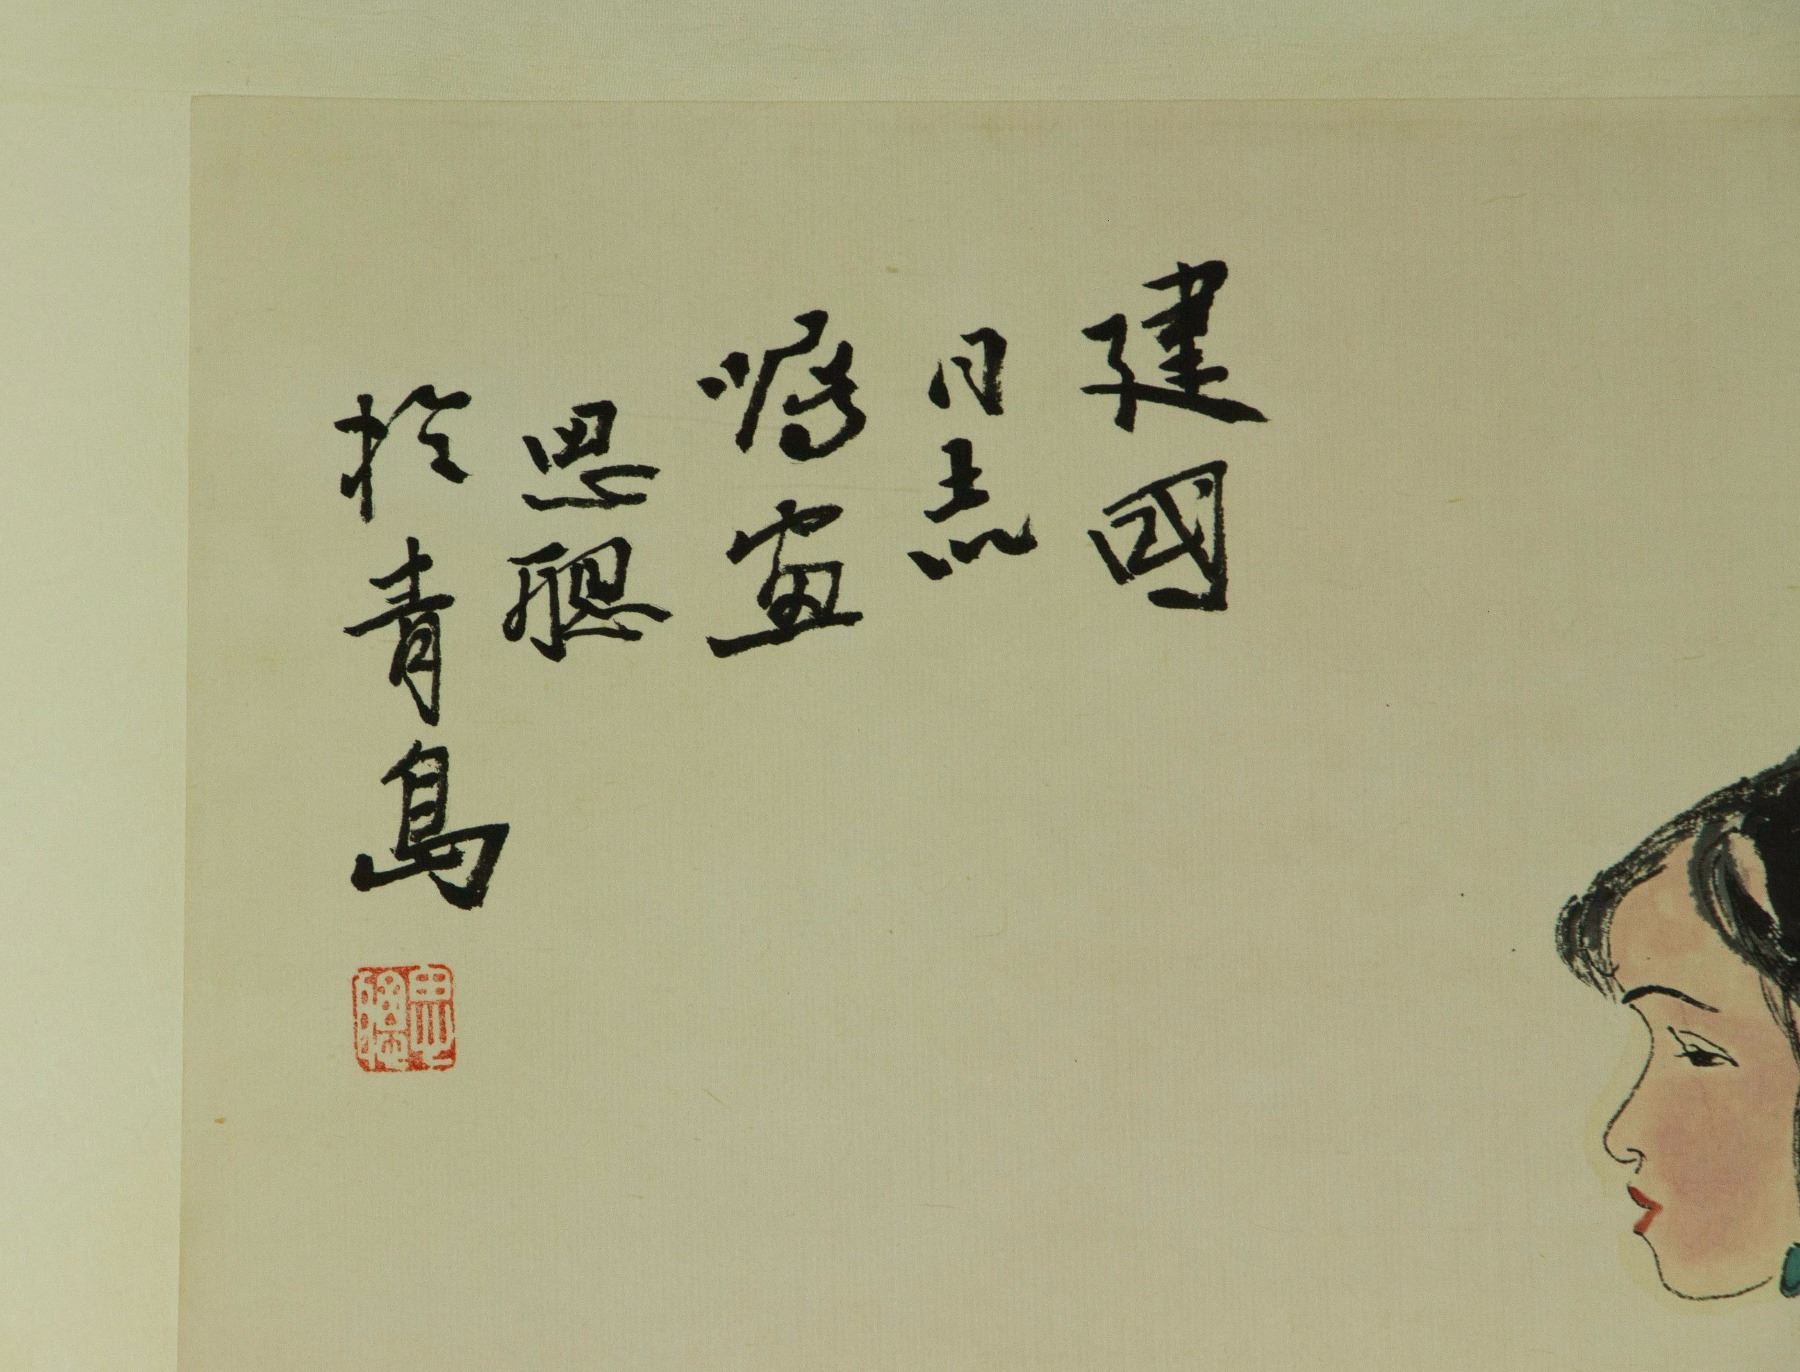 建國
同志
嘱畫
思聰
於青島